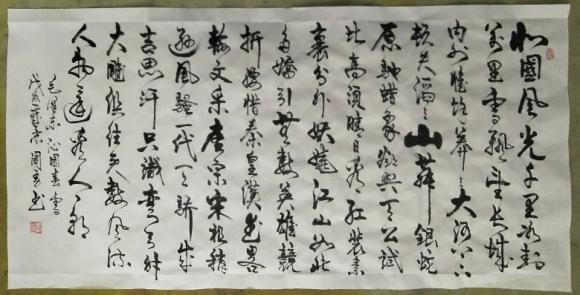 北國風光千里冰封
萬里雪飄望長城
内外惟餘莽々大河上下
頓失滔々山舞銀蛇
原馳蜡象欲與天公試
比高須晴日看紅裝素
裹分外妖嬈江山如此
多嬌引無數英雄競
折腰惜秦皇漢武略
輸文采唐宗宋祖稍
遜風騷一代天驕成
吉思汗只識彎弓射
大雕俱往矣數風流
人物還看今朝
毛澤東沁園春雪
戊戌 周 书